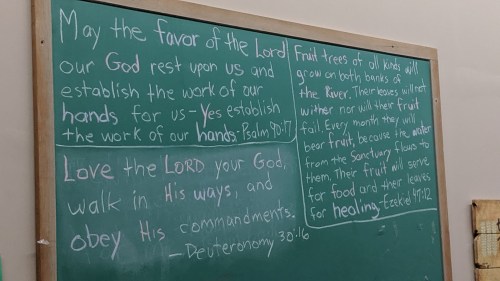 May the favor of the Lord
our God rest upon us and
establish the work of our
hands for us - Yes establish
the work of our hands - Psalm 90:17
Love the LORD your God,
walk in His ways, and
obey His commandments.
- Deuteronomy 30:16
Fruit trees of all kinds will
grow on both banks of
the River. Their leaves will not
wither nor will their fruit
fail. Every month they will
bear fruit, because the water
from the Sanctuary flows to
them. Their fruit will serve
for food and their leaves
for healing - Ezekiel 47:12